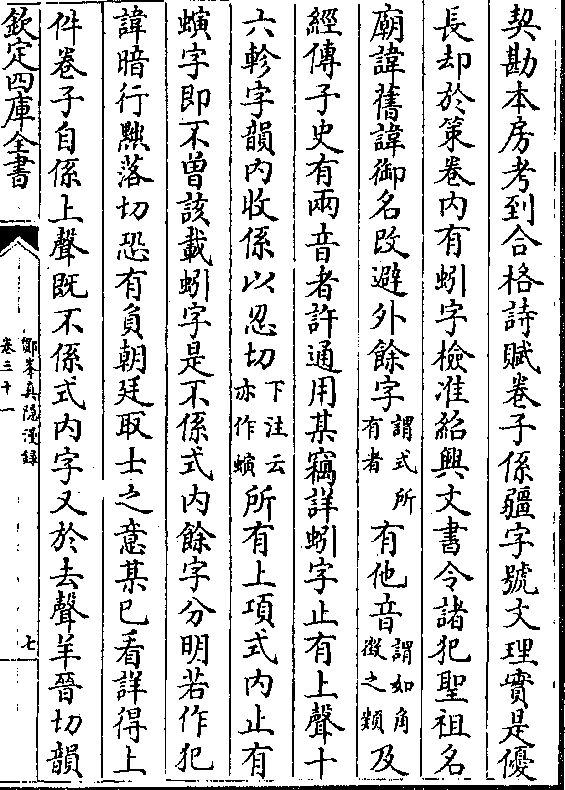 契勘本房考到合格詩賦卷子係疆字號文理實是優
長却於策卷内有蚓字檢准紹興文書令諸犯聖祖名
廟諱舊諱御名改避外餘字謂式所有者有他音謂如角徵之類及
經傳子史有兩音者許通用某竊詳蚓字止有上聲十
六軫字韻内收係以忍切下注云亦作螾所有上項式内止有
螾字即不曽該載蚓字是不係式内餘字分明若作犯
諱暗行黜落切恐有負朝廷取士之意某已看詳得上
件卷子自係上聲既不係式内字又於去聲羊晉切韻
欽定四庫全書
鄮峯真隠漫録
卷三十一
七